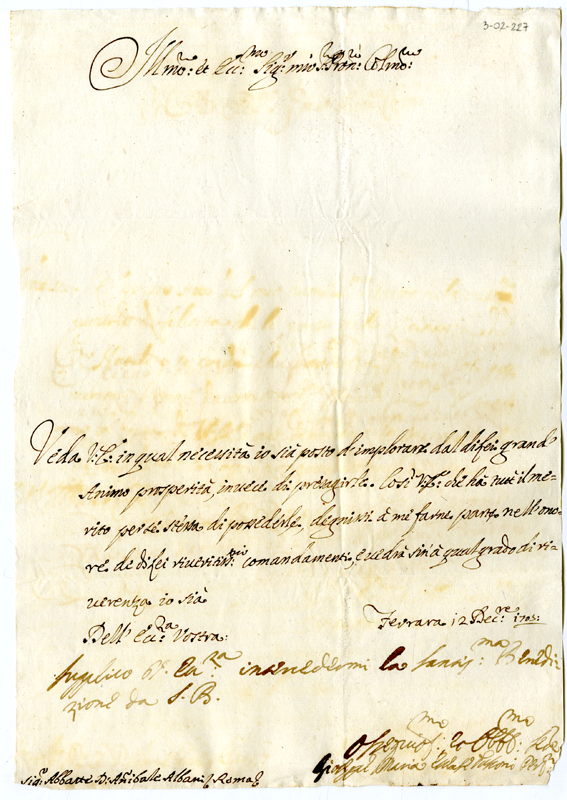 3-02-227
Ill.mo: et Ecc.mo Sig.r mio: Pron: Colmo:
Veda V:E: in qual necessità io sia posto d'implorare dal di lei grand'
Animo prosperità, invece di presagirle. Così V:E: che hà tutt'il me-
rito per sè stessa di possederle, degnisi à me farne parte nell'ono-
re de di lei riveritissmi comandamenti, e vedrà sin à qual grado di ri-
verenza io sia
Dell'Ecc.za Vostra:
Ferrara 12 Decre 1705:
supplico V.ra Ecza intendermi la santis:ma Benedi-
zione da S. B.
Osequios:mo Obb:mo
Maria
Sigr Abbate D: Anibale Albani / Roma